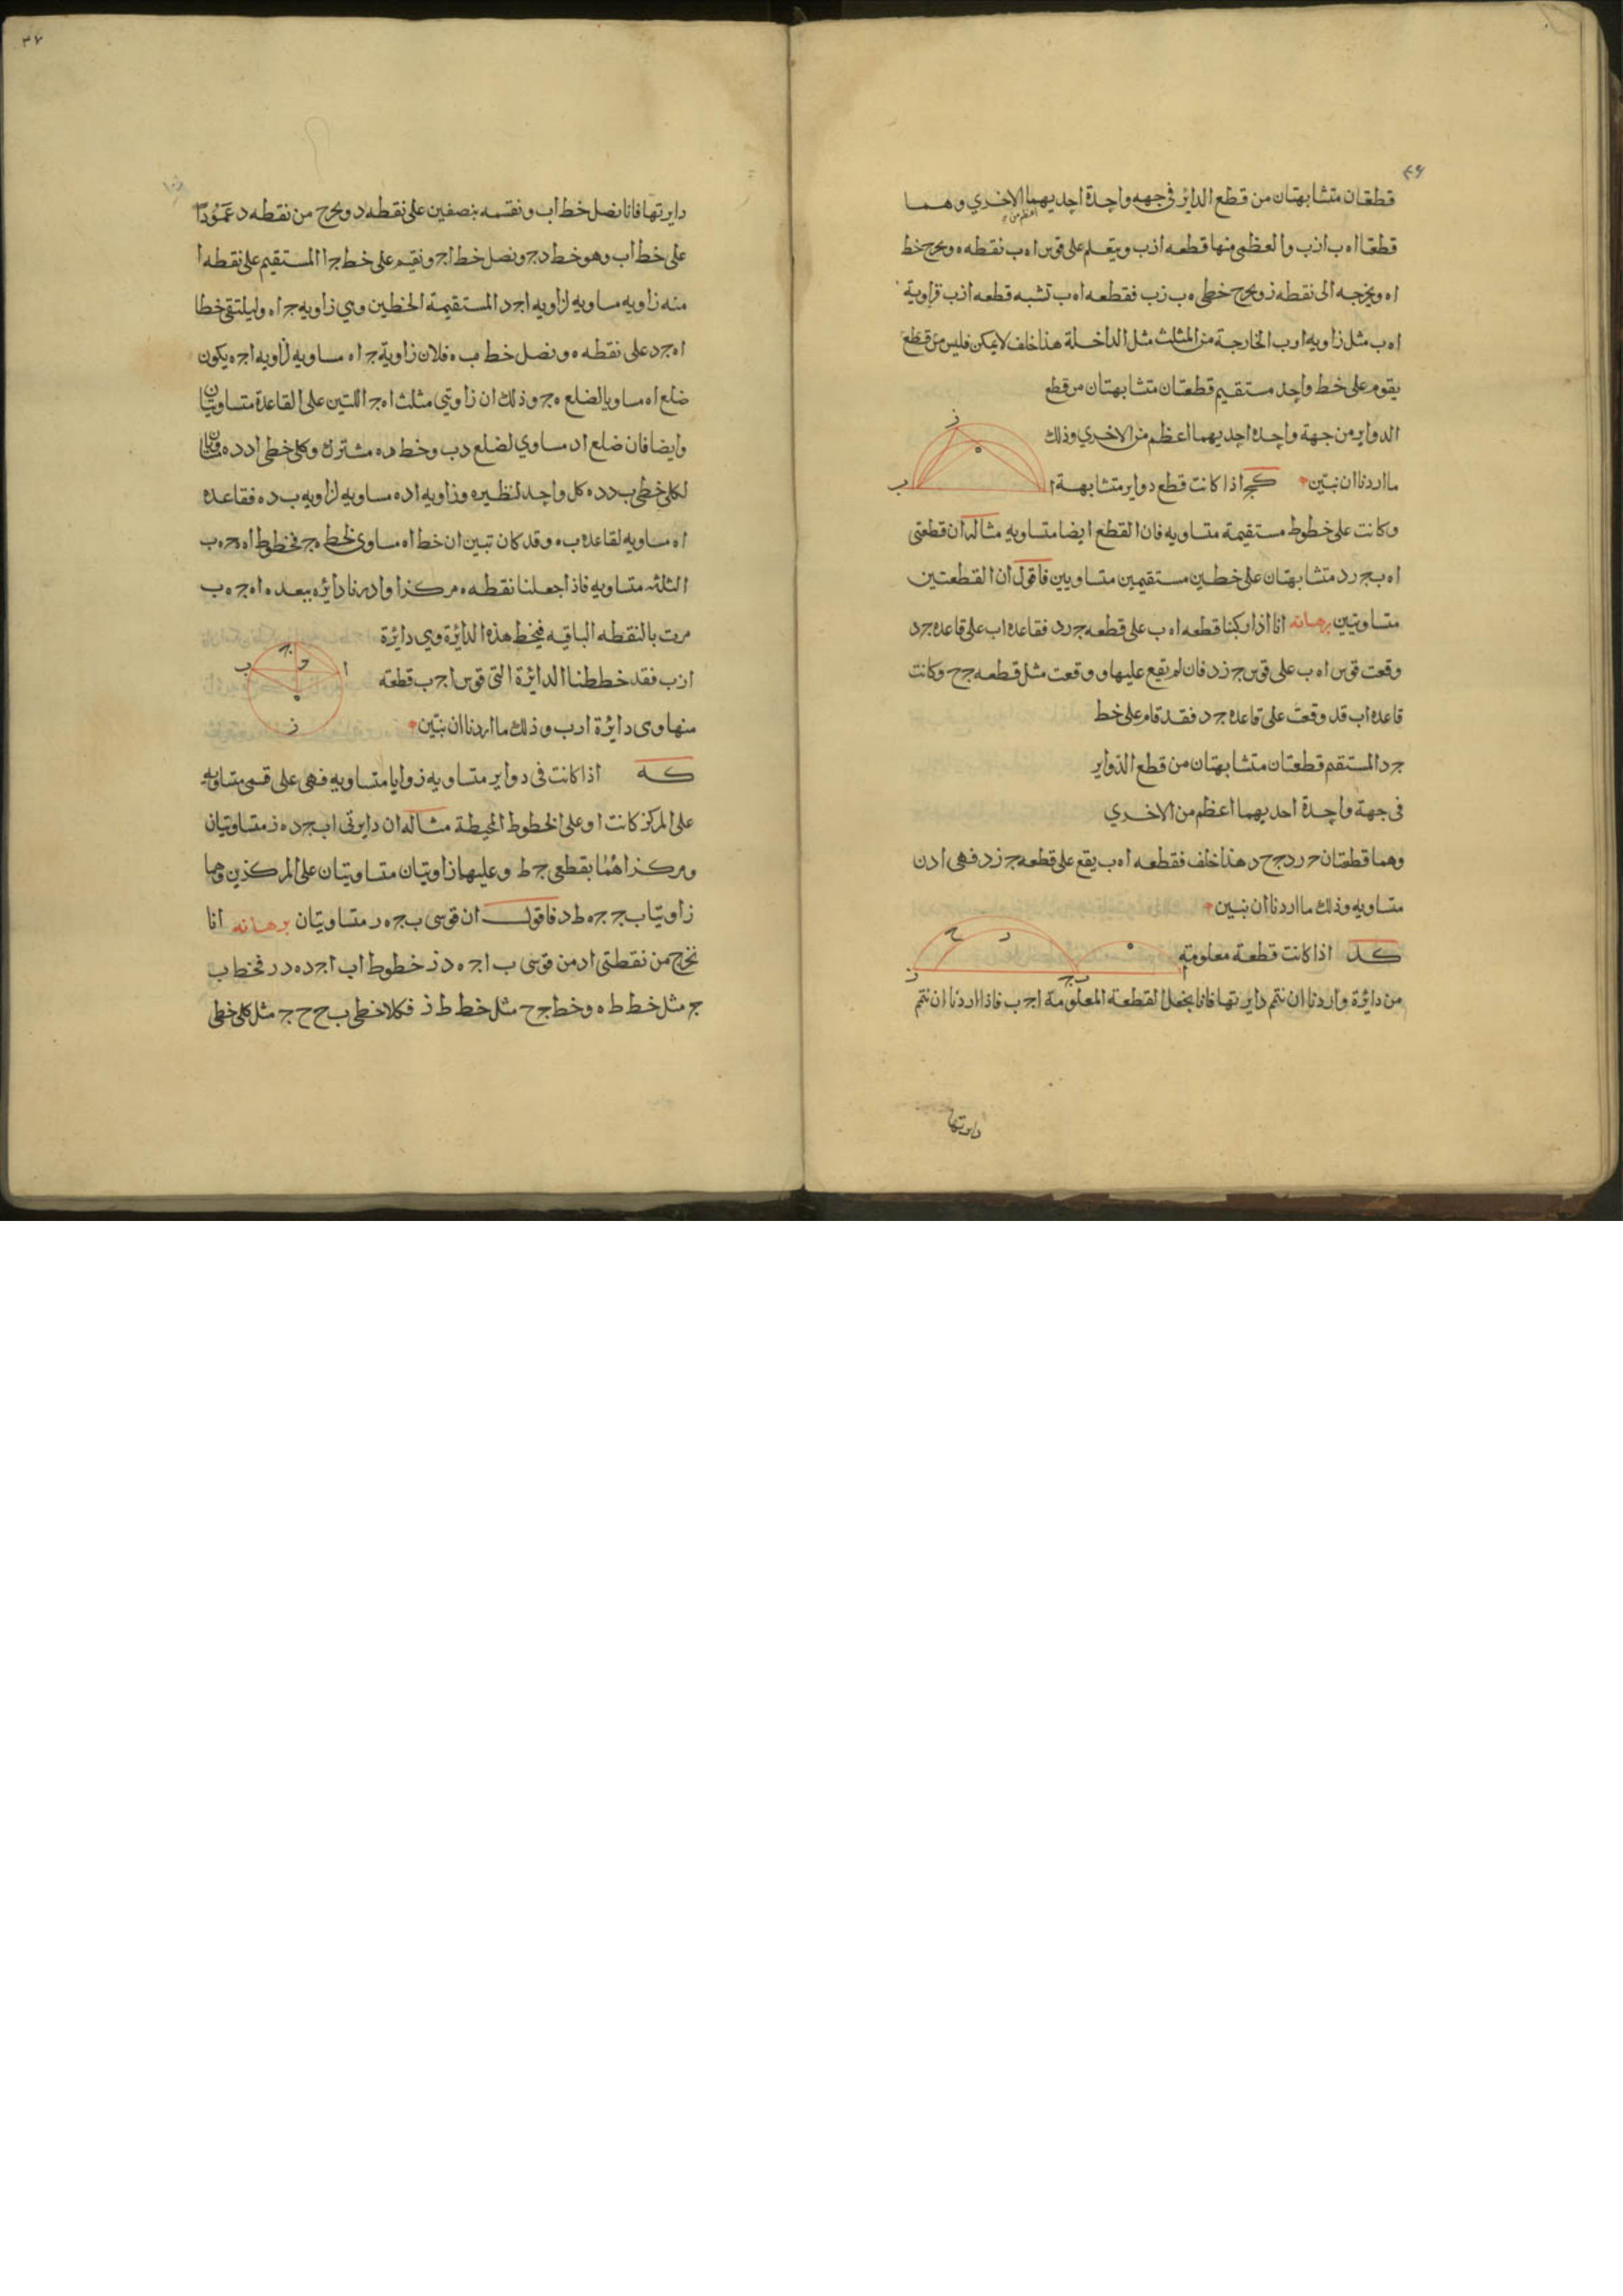 ٤٦
قطعتان متشابهتان من قطع الدائر فى جهه واحدة احديهما الاخرى وهما
اعظم من
قطعتا ا ه ب ا ز ب والعظمى منها قطعه ا ز ب ويتعلم على قوس ا ه ب نقطه ه ونخرج خط
ا ه ويخرجه الى نقطه ز ونخرج خطى ه ب ز ب فقطعه ا ه ب تشبه قطعه ا ز ب فزاوية
ا ه ب مثل زاويه ا ر ب الخارجة من المثلث مثل الداخلة هذا خلف لا يمكن فليس من قطع
يقوم على خط واحد مستقيم قطعتان متشابهتان من قطع
الدواير من جهة واحده احديهما اعظم من الاخرى وذلك
ما اردنا ان نبين كج اذا كانت قطع دواير متشابهة
وكانت على خطوط مستقيمة متساويه فان القطع ايضا متساويه مثاله ان قطعتى
ا ه ب ج ر د متشابهتان على خطين مستقيمين متساويين فاقول ان القطعتين
متساويتين برهانه انا اذا ركبنا قطعه ا ه ب على قطعه ج ر د فقاعده ا ب على قاعده ج د
وقعت قوس ا ه ب على قوس ج ز د فان لم يقع عليها ووقعت مثل قطعه ج ح وكانت
قاعده ا ب قد وقعت على قاعده ج د فقد قام على خط
ج د المستقيم قطعتان متشابهتان من قطع الدواير
فى جهة واحدة احديهما اعظم من الاخرى
وهما قطعتان ج ر د ج ح د هذا خلف فقطعه ا ه ب يقع على قطعه ج ز د فهى اذن
متساويه وذلك ما اردنا ان نبين
كد اذا كانت قطعة معلومة
من دائرة واردنا ان نتم دايرتها فانا نجعل القطعة المعلومة ا ج ب فاذا اردنا ان نتم
دايرتها
٣٧
دايرتها فانا نصل خط ا ب ونقسمه بنصفين على نقطه د ونخرج من نقطه د عمودا
على خط ا ب وهو خط د ج ونصل خط ا ج ونقيم على خط ج ا المستقيم على نقطه ا
منه زاويه مساويه لزاويه ا ج د المستقيمة الخطين وهى زاويه ج ا ه وليلتقى خطا
ا ه ج د على نقطه ه ونصل خط ب ه فلان زاوية ج ا ه مساويه لزاويه ا ج ه يكون
ضلع ا ه مساويا لضلع ه ج وذلك ان زاويتى مثلث ا ه ج اللتين على القاعدة متساويتان
وايضا فان ضلع ا د مساوى لضلع د ب وخط د ه مشترك وكلى خطى ا د د ه مساويان
لكلى خطى ب د د ه كل واحد لنظيره وزاويه ا د ه مساويه لزاويه ب د ه فقاعده
ا ه مساويه لقاعده ب ه وقد كان تبين ان خط ا ه مساوى لخط ه ج فخطوط ا ه ه ج ه ب
الثلثه متساويه فاذا جعلنا نقطه ه مركزا وادرنا دائره ببعد ه ا ه ج ه ب
مرت بالنقطه الباقيه فيخط هذه الدائرة وهى دائرة
ا ز ب فقد خططنا الدائرة التى قوس ا ج ب قطعة
منها وهى دايرة ا ر ب وذلك ما اردنا ان نبين
كه اذا كانت فى دواير متساويه زوايا متساويه فهى على قسى متساويه
على المركز كانت او على الخطوط المحيطة مثاله ان دايرتى ا ب ج د ه ز متساويتان
ومركزاهما نقطتى ح ط وعليها زاويتان متساويتان على المركزين وهما
زاويتا ب ح ج ه ط د فاقول ان قوسى ب ج ه ر متساويتان برهانه انا
نخرج من نقطتى ا د من قوسى ب ا ج ه د ز خطوط ا ب ا ج د ه د ر فخط ب
ح مثل خط ط ه وخط ج ح مثل خط ط ز فكلا خطى ب ح ح ج مثل كلى خطى